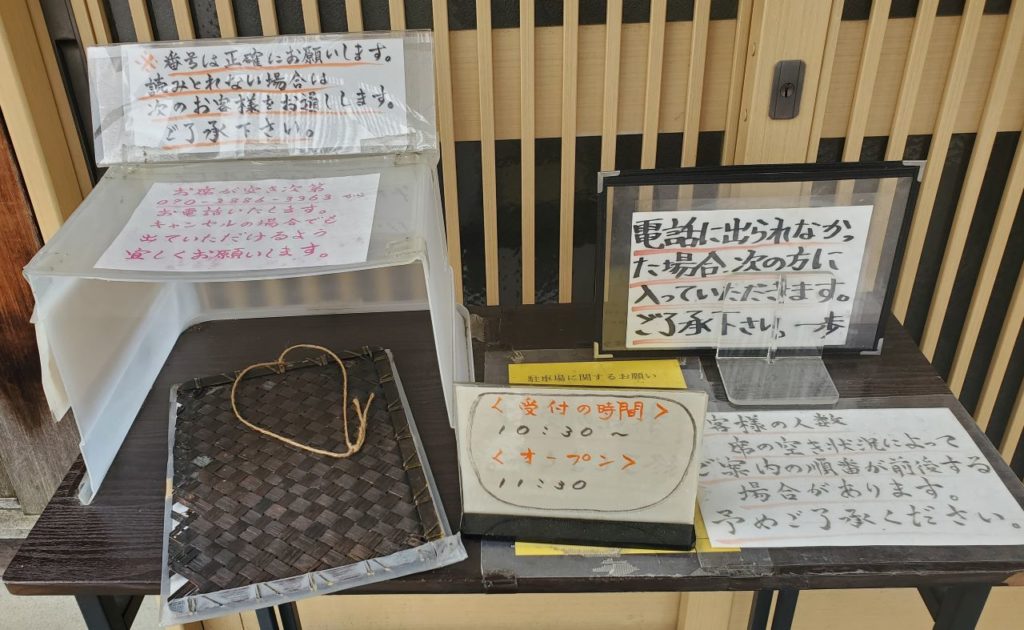 ※番号は正確にお願いします。
読みとれない場合は
次のお客様をお通しします。
ご了承下さい。
お席が空き次第
090-3886-3363から
お電話いたします。
キャンセルの場合でも
出ていただけるよう
宜しくお願いします。
電話に出られなかっ
た場合、次の方に
入っていただきます。
ご了承下さい。一歩
駐車場に関するお願い
<受付の時間>
10:30~
<オープン>
11:30
客様の人数
席の空き状況によって
ご案内の順番が前後する
場合があります。
予めご了承ください。